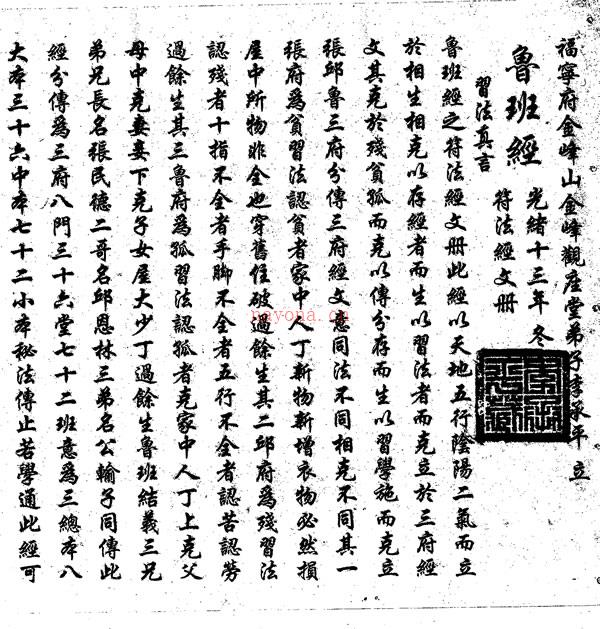 福寧府金峰山金峰觀座堂弟子李承平立
魯班經
光緒十三年冬
符法經文册
習法真言
魯班經之符法經文册此經以天地五行陰陽二氣而立
於相生相克以存經者而生以習法者而克立於三府經
文其克於殘貧孤而克以傳分存而生以習學施而克立
張邱魯三府分傳三府經文意同法不同相克不同其一
張府為貧習法認貧者家中人丁新物新增衣物必然損
屋中所物非全也穿舊住破過餘生其二邱府為殘習法
認殘者十指不全者手脚不全者五行不全者認苦認勞
過餘生其三魯府為孤習法認孤者克家中人丁上克父
母中克妻妾下克子女屋大少丁過餘生魯班結義三兄
弟兄長名張民德二哥名邱恩林三弟名公輸子同傳此
經分傳為三府八門三十六堂七十二班意為三總本八
大本三十六中本七十二小本秘法傳止若學通此經可
nayona.cn